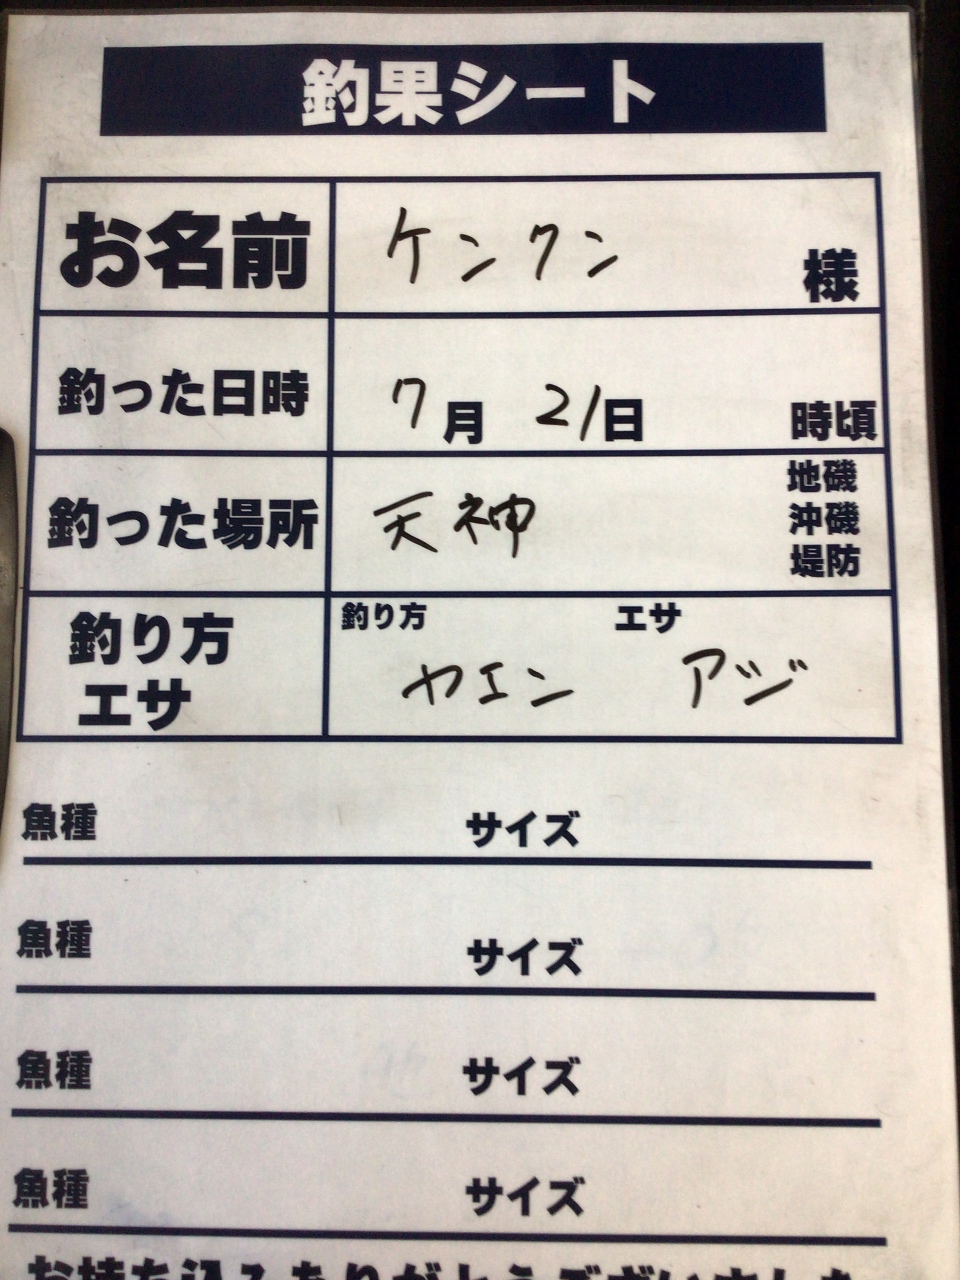 釣果シート
お名前 ケンクン 様
釣った日時 7月 21日 時頃
釣った場所 天神 地磯 沖磯 堤防
釣り方 エサ
釣り方 ヤエン エサ アジ
魚種 サイズ
魚種 サイズ
魚種 サイズ
魚種 サイズ
お持ち込みありがとうございました